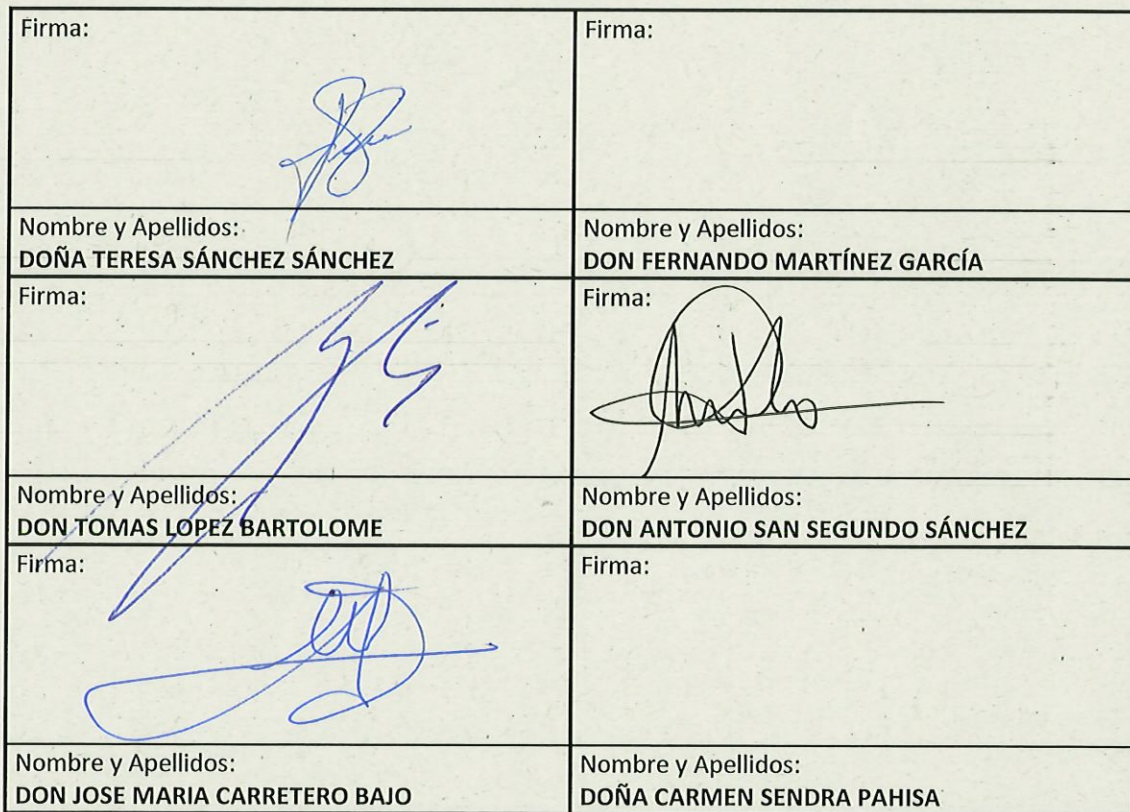 Firma:
Firma:
Nombre y Apellidos:
DOÑA TERESA SÁNCHEZ SÁNCHEZ
Nombre y Apellidos:
DON FERNANDO MARTÍNEZ GARCÍA
Firma:
Firma:
Nombre y Apellidos:
DON TOMAS LOPEZ BARTOLOME
Nombre y Apellidos:
DON ANTONIO SAN SEGUNDO SÁNCHEZ
Firma:
Firma:
Nombre y Apellidos:
DON JOSE MARIA CARRETERO BAJO
Nombre y Apellidos:
DOÑA CARMEN SENDRA PAHISA